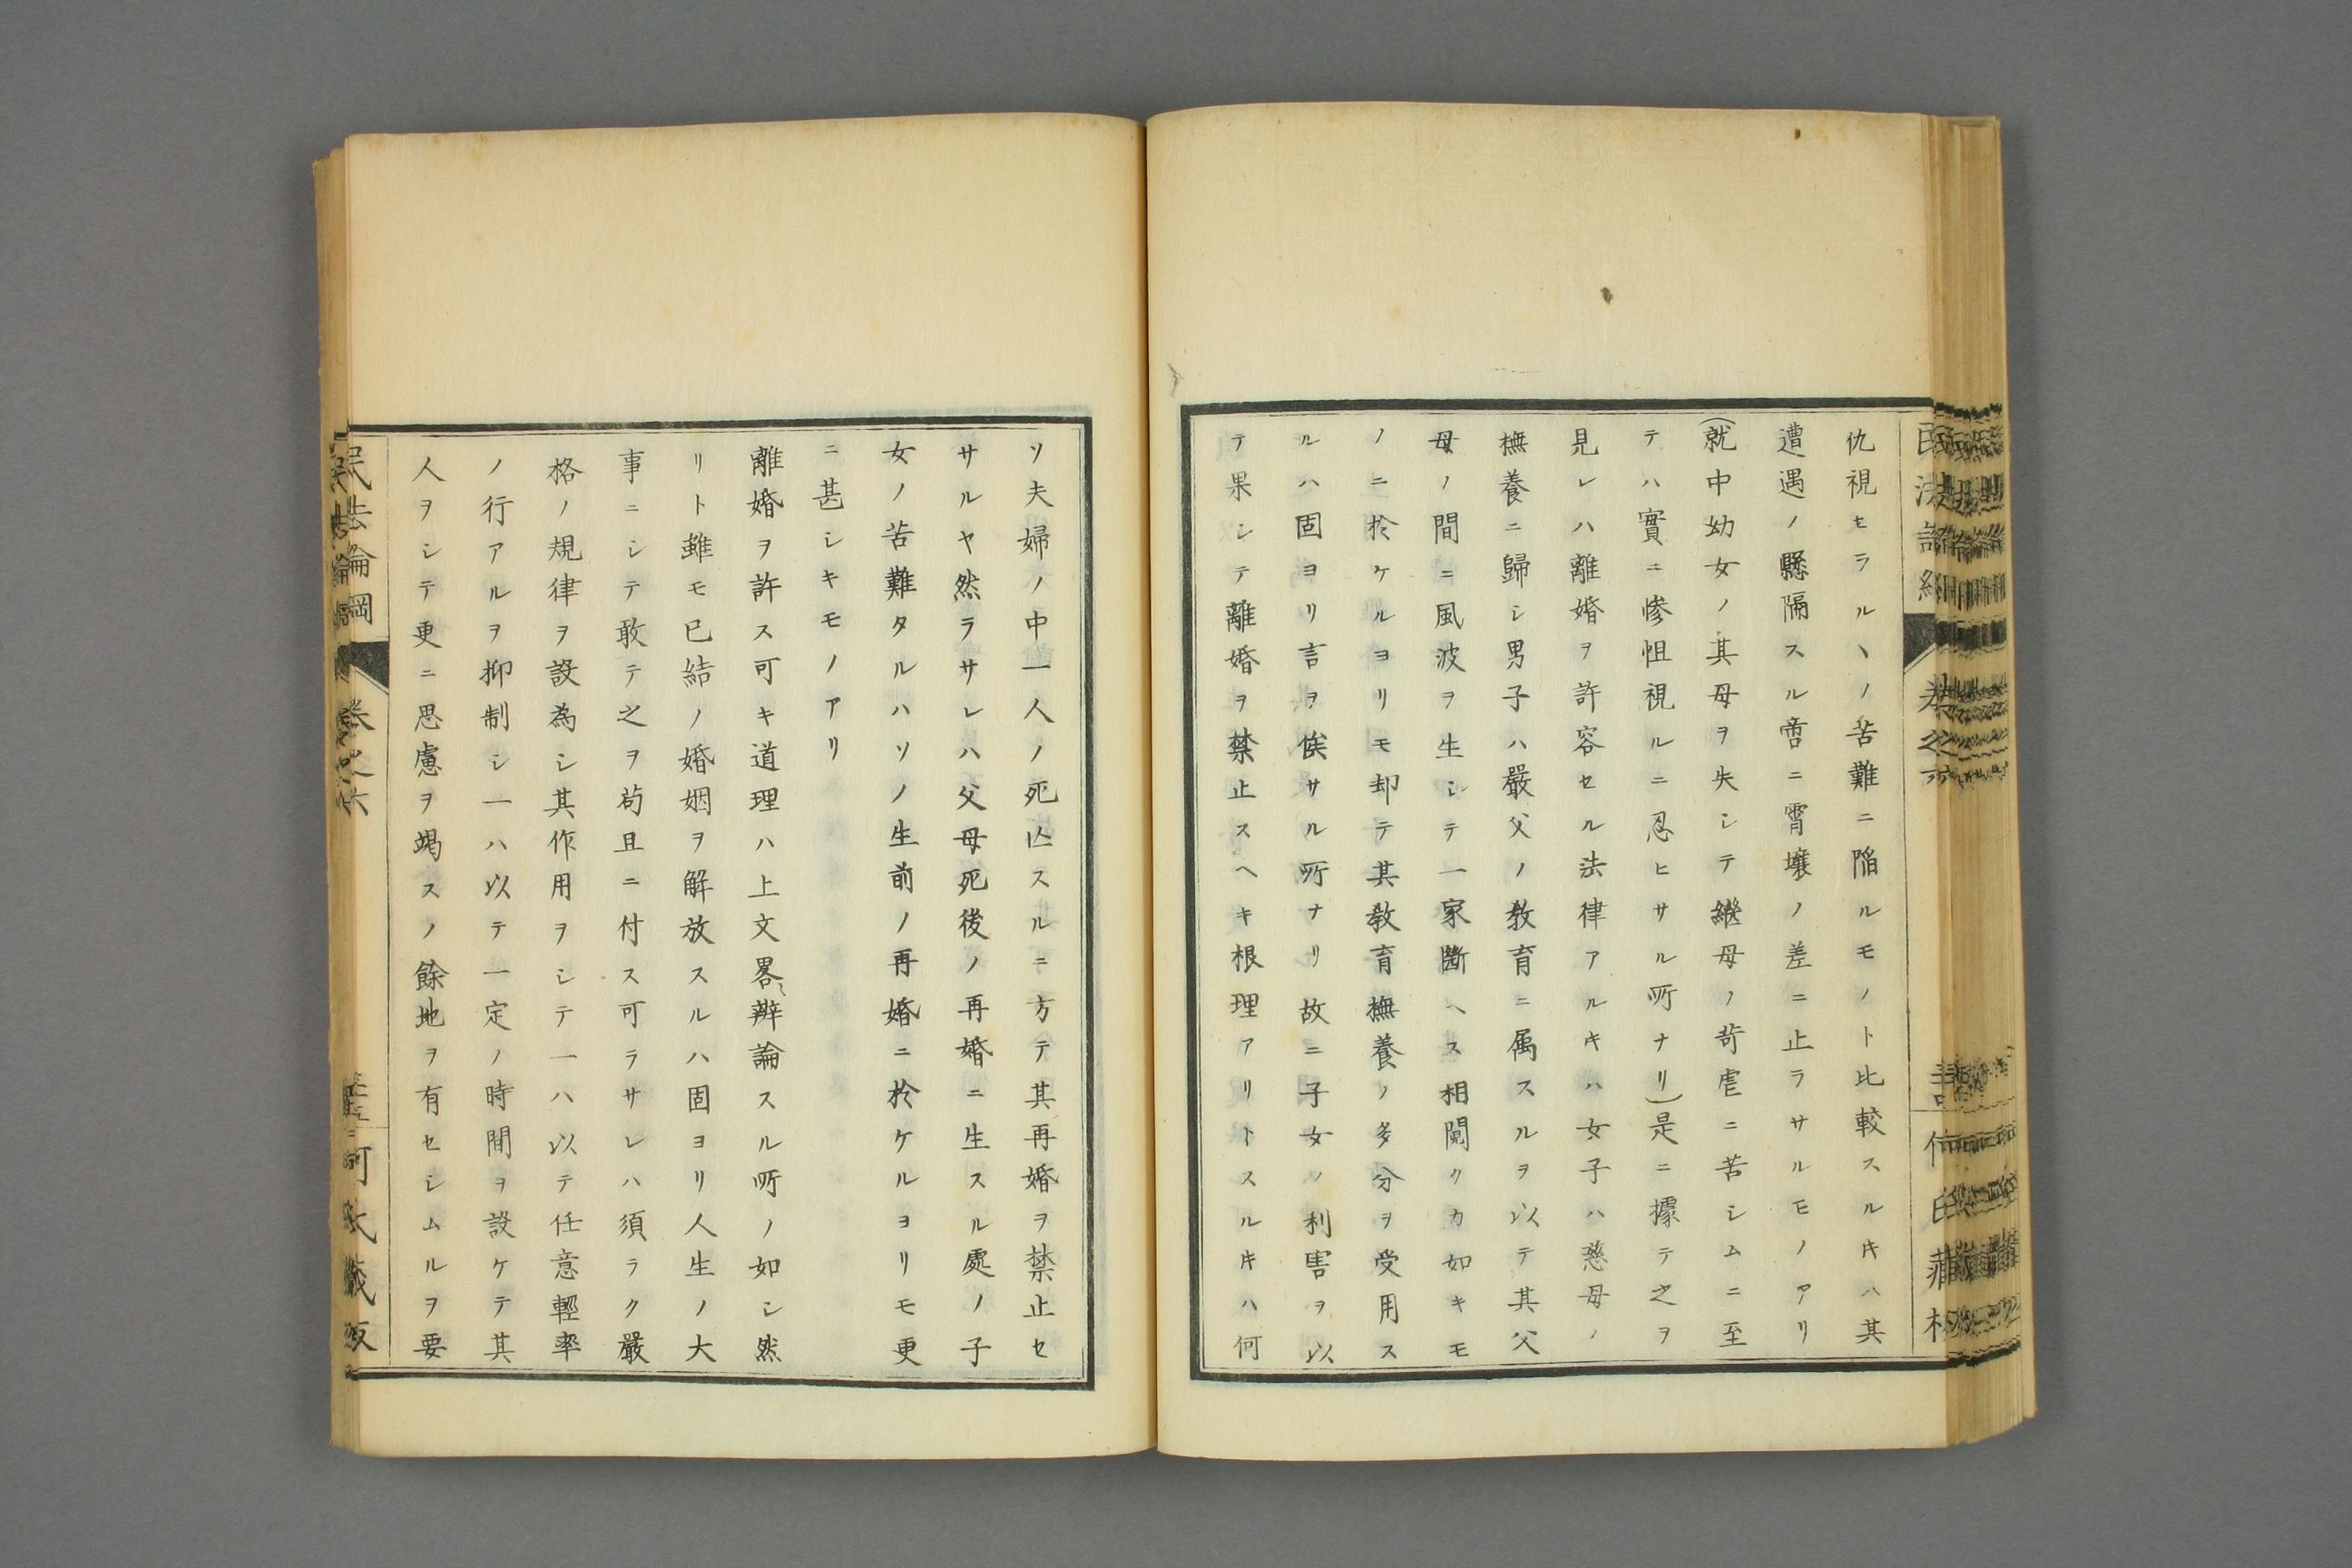 仇視セラルヽノ苦難ニ陷ルモノト比較スルキハ其
遭遇ノ懸隔スル啻ニ霄壤ノ差ニ止ラサルモノアリ
(就中幼女ノ其母ヲ失シテ繼母ノ苛虐ニ苦シムニ至
テハ實ニ慘怛視ルニ忍ヒサル所ナリ)是ニ據テ之ヲ
見レハ離婚ヲ許容セル法律アルキハ女子ハ慈母ノ
撫養ニ歸シ男子ハ嚴父ノ敎育ニ属スルヲ以テ其父
母ノ間ニ風波ヲ生シテ一家斷ヘス相鬩クカ如キモ
ノニ於ケルヨリモ却テ其敎育撫養ノ多分ヲ受用ス
ルハ固ヨリ言ヲ俟サル所ナリ故ニ子女ノ利害ヲ以
テ果シテ離婚ヲ禁止スヘキ根理アリトスルキハ何
ソ夫婦ノ中一人ノ死亾スルニ方テ其再婚ヲ禁止セ
サルヤ然ラサレハ父母死後ノ再婚ニ生スル處ノ子
女ノ苦難タルハソノ生前ノ再婚ニ於ケルヨリモ更
ニ甚シキモノアリ
離婚ヲ許ス可キ道理ハ上文畧〻辨論スル所ノ如シ然
リト雖モ已結ノ婚姻ヲ解放スルハ固ヨリ人生ノ大
事ニシテ敢テ之ヲ苟且ニ付ス可ラサレハ須ラク嚴
格ノ規律ヲ設為シ其作用ヲシテ一ハ以テ任意輕率
ノ行アルヲ抑制シ一ハ以テ一定ノ時間ヲ設ケテ其
人ヲシテ更ニ思慮ヲ竭スノ餘地ヲ有セシムルヲ要
民法論綱 卷之六 何氏藏版